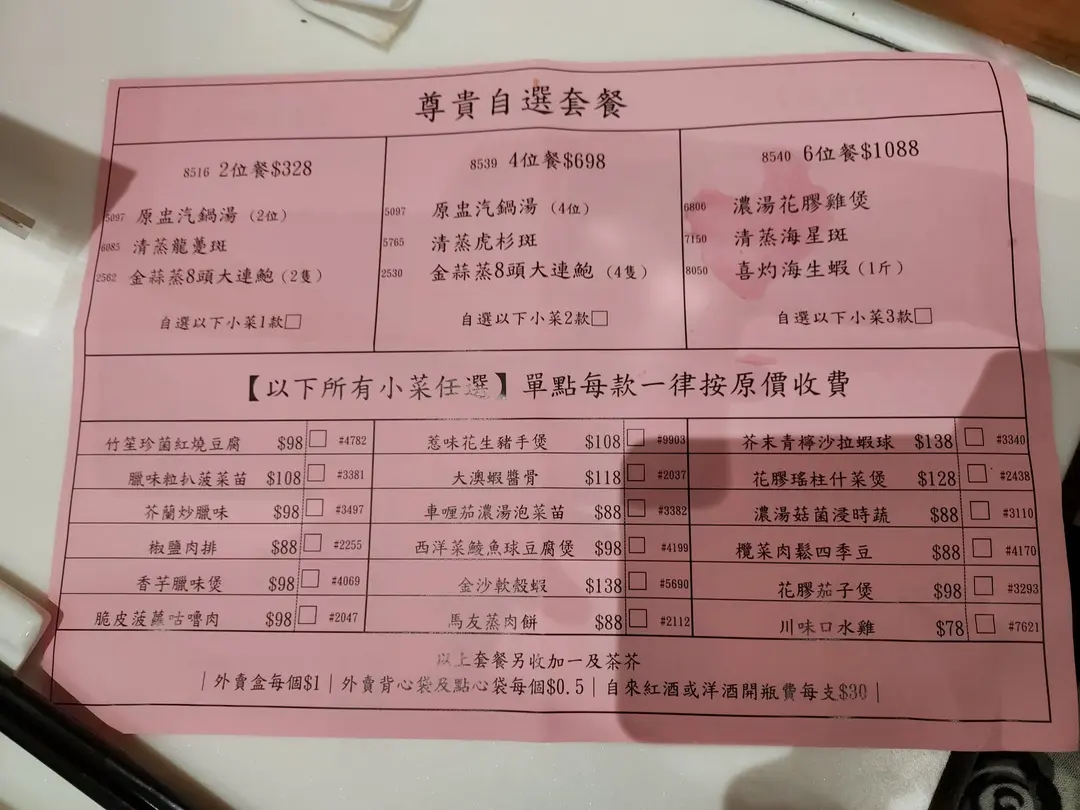 尊貴自選套餐
8516 2位餐$328
5097 原盅汽鍋湯（2位）
6085 清蒸龍躉斑
2562 金蒜蒸8頭大連鮑（2隻）
自選以下小菜1款□
8539 4位餐$698
5097 原盅汽鍋湯（4位）
5765 清蒸虎杉斑
2530 金蒜蒸8頭大連鮑（4隻）
自選以下小菜2款□
8540 6位餐$1088
6806 濃湯花膠雞煲
7150 清蒸海星斑
8050 喜灼海生蝦（1斤）
自選以下小菜3款□
【以下所有小菜任選】單點每款一律按原價收費
竹笙珍菌紅燒豆腐 $98 □ #4782
臘味粒扒菠菜苗 $108 □ #3381
芥蘭炒臘味 $98 □ #3497
椒鹽肉排 $88 □ #2255
香芋臘味煲 $98 □ #4069
脆皮菠蘿咕嚕肉 $98 □ #2047
惹味花生豬手煲 $108 □ #9903
大澳蝦醬骨 $118 □ #2037
車喱茄濃湯泡菜苗 $88 □ #3382
西洋菜鯪魚球豆腐煲 $98 □ #4199
金沙軟殼蝦 $138 □ #5690
馬友蒸肉餅 $88 □ #2112
芥末青檸沙拉蝦球 $138 □ #3340
花膠瑤柱什菜煲 $128 □ #2438
濃湯菇菌浸時蔬 $88 □ #3110
欖菜肉鬆四季豆 $88 □ #4170
花膠茄子煲 $98 □ #3293
川味口水雞 $78 □ #7621
以上套餐另收加一及茶芥
｜外賣盒每個$1｜外賣背心袋及點心袋每個$0.5｜自來紅酒或洋酒開瓶費每支$30｜